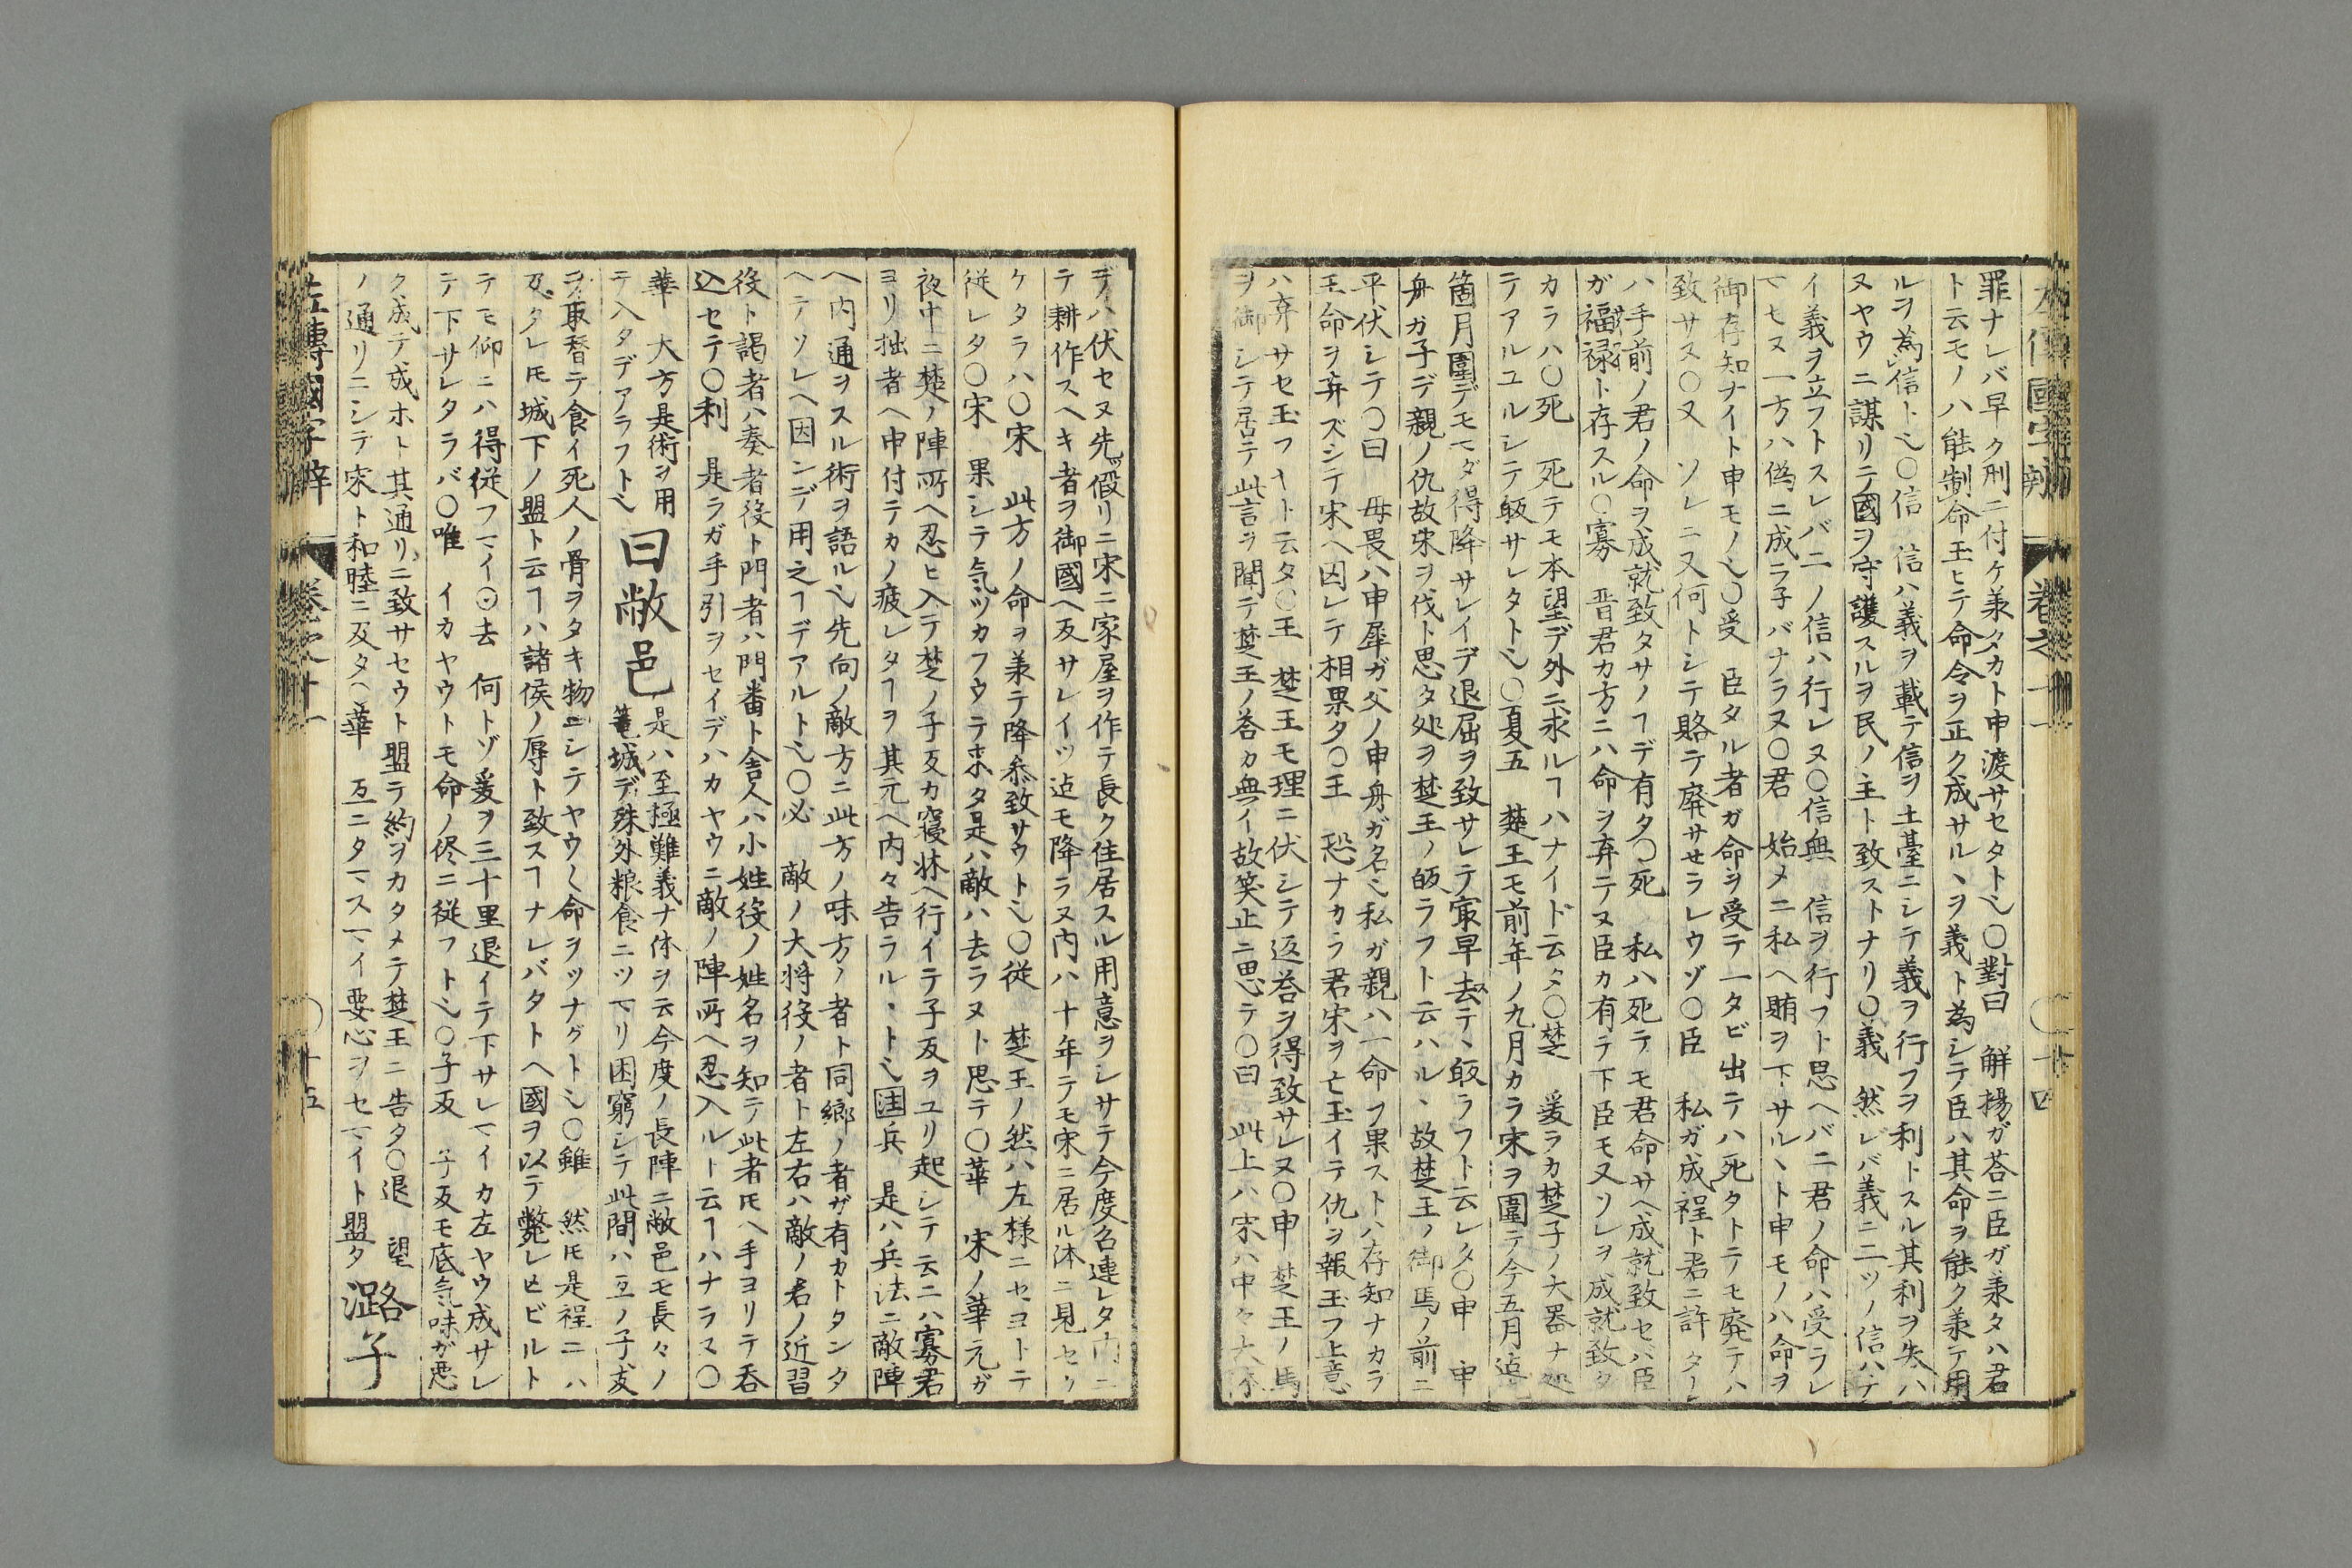 左傳國字辯 卷之十一 ○十四
罪ナレバ早ク刑ニ付ケ兼タカト申渡サセタト〻○對曰 解揚ガ荅ニ臣ガ兼タハ君
ト云モノハ能制命玉ヒテ命令ヲ正ク成サルヽヲ義ト為シテ臣ハ其命ヲ能ク兼テ用
ルヲ為信ト〻○信 信ハ義ヲ載テ信ヲ土臺ニシテ義ヲ行フヲ利トスル其利ヲ失ハ
ヌヤウニ謀リテ國ヲ守護スルヲ民ノ主ト致ストナリ○義 然レバ義ニ二ツノ信ハナ
イ義ヲ立フトスレバ二ノ信ハ行レヌ○信無 信ヲ行フト思ヘバ二君ノ命ハ受ラレ
マセヌ一方ハ偽ニ成ラ子バナラヌ○君 始メニ私ヘ賄ヲ下サルヽト申モノハ命ヲ
御存知ナイト申モノ〻○受 臣タル者ガ命ヲ受テ一タビ出テハ死タトテモ廃テハ
致サヌ○又 ソレニ又何トシテ賂テ廃サセラレウゾ○臣 私ガ成程ト君ニ許タ
ハ手前ノ君ノ命ヲ成就致タサノヿデ有タ○死 私ハ死テモ君命サヘ成就致セバ臣
ガ福禄ト存スル○寡 晋君カ方ニハ命ヲ弃テヌ臣カ有テ下臣モ又ソレヲ成就致タ
カラハ○死 死テモ本望デ外ニ求ルヿハナイド云タ○楚 爰ラカ楚子ノ大器ナ処
テアルユルシテ皈サレタト〻○夏五 楚王モ前年ノ九月カラ宋ヲ圍テ今五月迠
箇月圍デモマダ得降サレイデ退屈ヲ致サレテ㝡早去テ、皈ラフト云レタ○申 申
舟ガ子デ親ノ仇故宋ヲ伐ト思タ処ヲ楚王ノ皈ラフト云ハルヽ故楚王ノ御馬ノ前ニ
平伏シテ○曰 毋畏ハ申犀ガ父ノ申舟ガ名〻私ガ親ハ一命フ果ストハ存知ナカラ
王命ヲ弃ズシテ宋ヘ因レテ相果タ○王 恐ナカラ君宋ヲ亡玉イテ仇ヲ報玉フ上意
ハ弃サセ玉フナト云タ○王 楚王モ理ニ伏シテ返荅ヲ得致サレヌ○申 楚王ノ馬
ヲ御シテ居テ此言ヲ聞テ楚王ノ荅カ無イ故笑止ニ思テ○曰 此上ハ宋ハ中々大
デハ伏セヌ先假リニ宋ニ家屋ヲ作テ長ク住居スル用意ヲシサテ今度召連レタ内ニ
テ耕作スヘキ者ヲ御國ヘ反サレイツ迠モ降ラヌ内ハ十年テモ宋ニ居ル体ニ見セ
ケタラハ○宋 此方ノ命ヲ兼テ降叅致サウト〻○従 楚王ノ然ハ左様ニセヨトテ
従レタ○宋 果シテ気ツカフウテ來タ是ハ敵ハ去ラヌト思テ○華 宋ノ華元ガ
夜中ニ楚ノ陣所ヘ忍ヒ入テ楚ノ子反カ寝牀ヘ行イテ子反ヲユリ起シテ云ニハ寡君
ヨリ拙者ヘ申付テカノ疲レタヿヲ其元ヘ内々告ラルヽト〻注兵 是ハ兵法ニ敵陣
ヘ内通ヲスル術ヲ語ル〻先向ノ敵方ニ此方ノ味方ノ者ト同郷ノ者ガ有カトタンタ
ヘテソレヘ因ンデ用之ヿデアルト〻○必 敵ノ大将役ノ者ト左右ハ敵ノ君ノ近習
役ト謁者ハ奏者役ト門者ハ門番ト舎人ハ小姓役ノ姓名ヲ知テ此者𪜈ヘ手ヨリテ呑
込セテ○利 是ラガ手引ヲセイデハカヤウニ敵ノ陣所ヘ忍入ルト云ヿハナラヌ○
華 大方是術ヲ用
テ入タデアラフト〻
曰敝邑
是ハ至極難義ナ体ヲ云今度ノ長陣ニ敝邑モ長々ノ
篭城デ殊外粮食ニツマリ困窮シテ此間ハ互ノ子支
ヲ取替テ食イ死人ノ骨ヲタキ物ニシテヤウ〱命ヲツナグト〻○雖 然𪜈是程ニハ
及ダレ𪜈城下ノ盟ト云ヿハ諸侯ノ辱ト致スヿナレバタトヘ國ヲ以テ斃レ𪜈ビルト
テモ仰ニハ得従フマイ○去 何トゾ爰ヲ三十里退イテ下サレマイカ左ヤウ成サレ
テ下サレタラバ○唯 イカヤウトモ命ノ侭ニ従フト〻○子反 子反モ底気味ガ悪
ク成テ成ホト其通リニ致サセウト盟テ約ヲカタメテ楚王ニ告タ○退 望
ノ通リニシテ宋ト和睦ニ及タ〻華 互ニタマスマイ要心ヲセマイト盟タ
潞子
左傳國字辯 卷之十一 ○十五